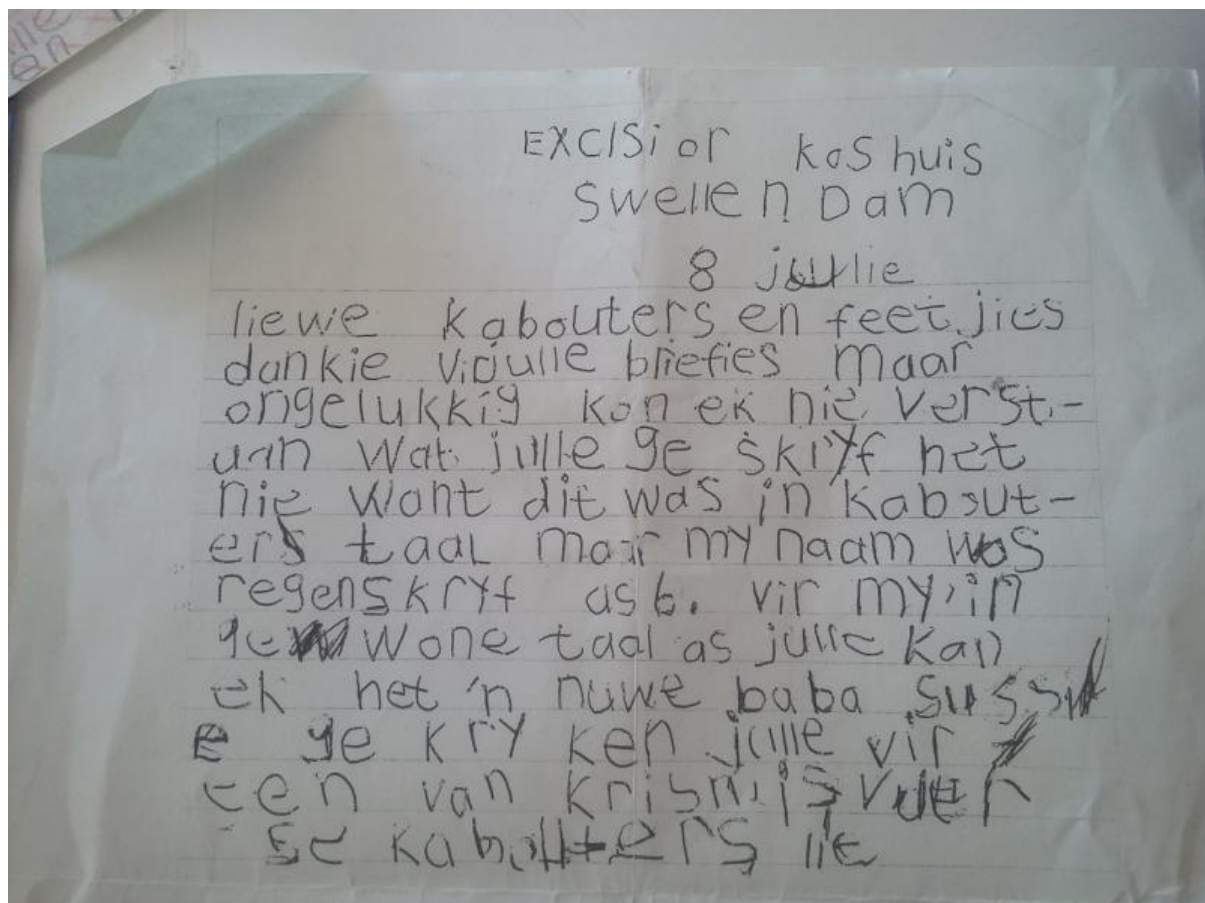 EXCISior koshuis
Swellen Dam
8 julie
liewe kabouters en feetjies
dankie virjulle briefies maar
ongelukkig kon ek nie verst-
aan wat julle ge skryf het
nie want dit was in kabout-
ers taal maar my naam was
regenskryf asb. vir my in
ge wone taal as julle kan
ek het 'n nuwe baba sussi
e ge kry ken julle vir
een van krismisvder
se kabouters lie